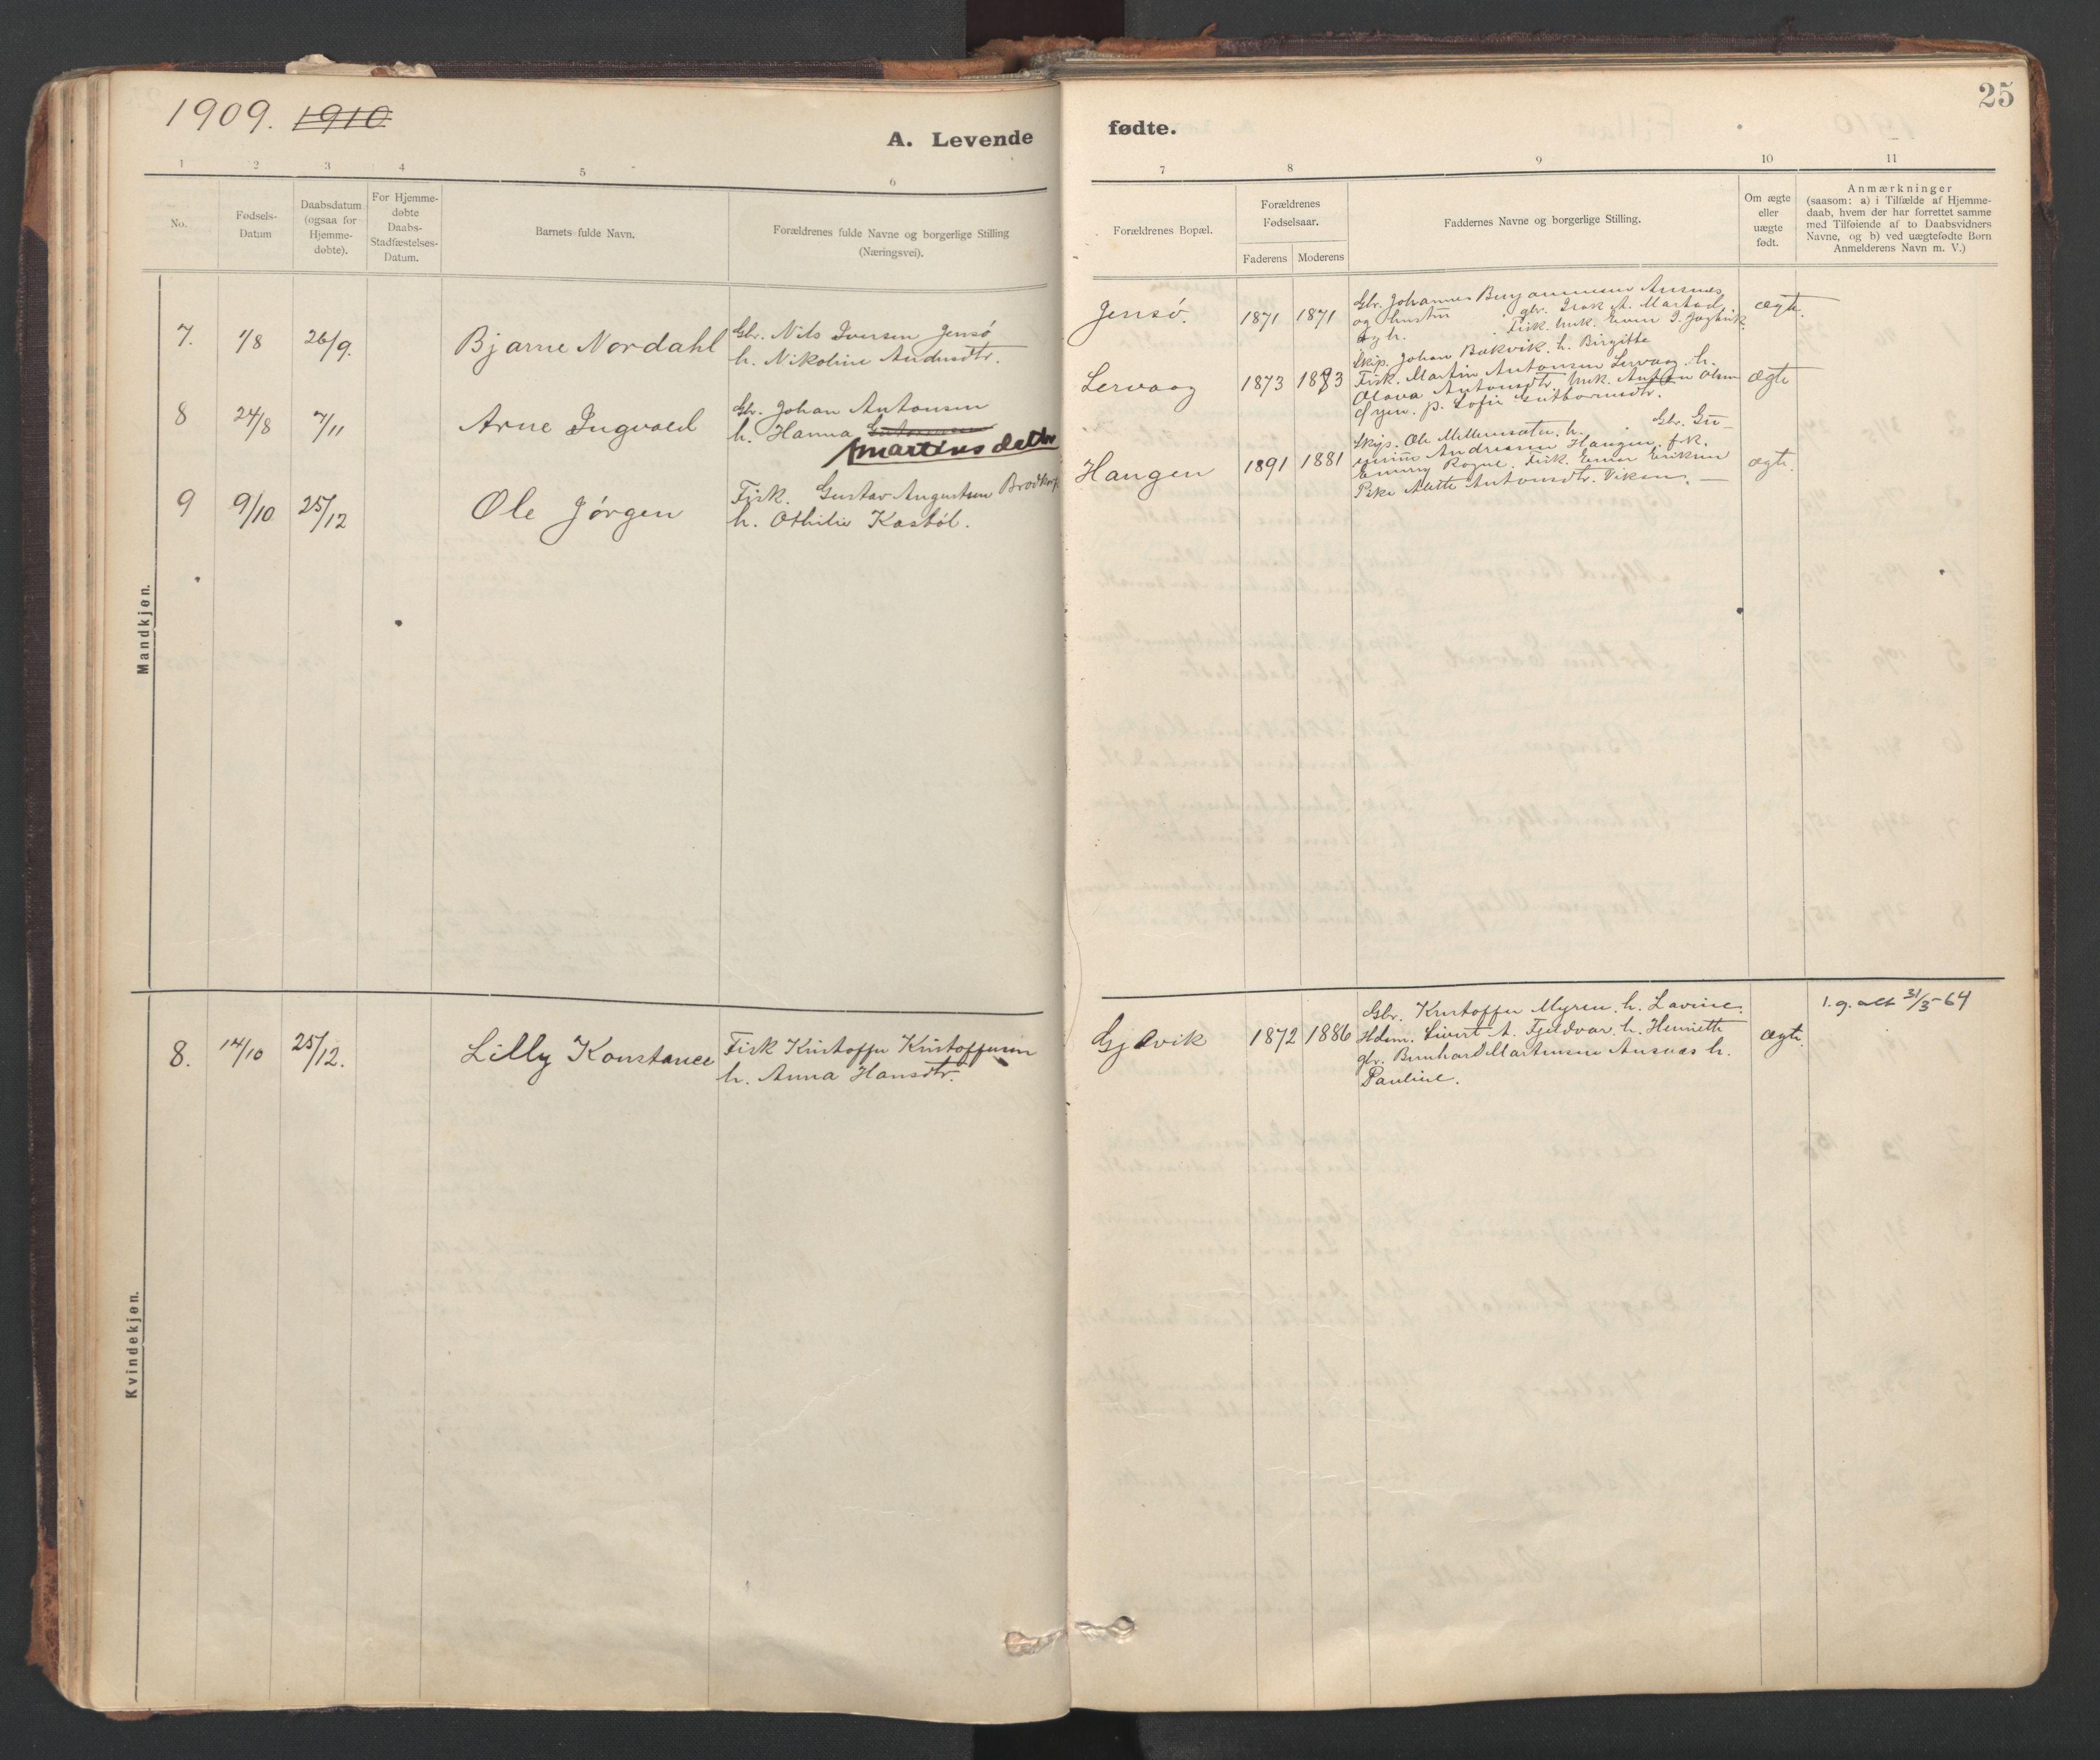 1909. 1910
25
A. Levende
fødte.
1 2 3 4 5 6
7 8 9 10 11
No.
Fødsels-
Datum
Daabsdatum
(ogsaa for
Hjemme-
døbte).
For Hjemme-
døbte
Daabs-
Stadfæstelses-
Datum.
Barnets fulde Navn.
Forældrenes fulde Navne og borgerlige Stilling
(Næringsvei).
Forældrenes Bopæl.
Forældrenes
Fødselsaar.
Faderens Moderens
Faddernes Navne og borgerlige Stilling.
Om ægte
eller
uægte
født.
Anmærkninger
(saasom: a) i Tilfælde af Hjemme-
daab, hvem der har forrettet samme
med Tilføiende af to Daabsvidners
Navne, og b) ved uægtefødte Børn
Anmelderens Navn m. V.)
Mandkjøn.
7. 1/8 26/9. Bjarne Nordahl
Gbr. Nils Iversen Jensø
h. Nikoline Andersdtr.
Jensø. 1871 1871
Gbr. Johannes Ansnæs
og hustru gbr. Isak A.
og h. Fisk. Unk.
ægte.
8 24/8 7/11 Arne Ingvald
Gbr. Johan Antonsen
h. Hanna
martinsdatter
Lervaag 1873 1883
Skip. Johan Bakvik. h. Birgitte
Fisk. Martin Antonsen Lervaag. h.
Olava Antonsdtr. Unk. Anton Olsen
p. Sofie Guttormsdtr.
ægte
9 9/10 25/12 Ole Jørgen
Fisk. Gustav Augustsen Brodtkorb
h. Othilie Kasbøl.
Haugen 1891 1881
Skip. Ole h. Gbr.
Andreassen Haugen. frk.
Emmy Rogne. Fisk. Einar Eriksen
Pike Alette Antonsdtr. Viken. —
ægte.
Kvindekjøn.
8. 14/10 25/12. Lilly Konstance
Fisk Kristoffer Kristoffersen
h. Anna Hansdtr.
Gjævik 1872 1886
Gbr. Kristoffer Myren. h. Lavine.
Hdsm. Sivert A. Fjeldvær. h. Henriette
gbr. Bernhard Martinsen Ansnæs h.
Pauline.
ægte.
l. g. att 31/3-64